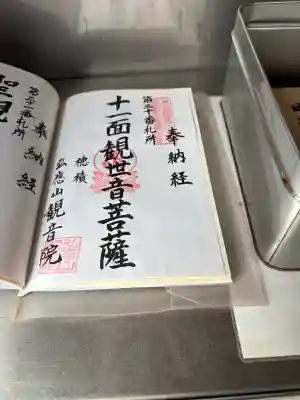 奉納経
第三十番札所
十一面観世音菩薩
穂積
弘應山観音院
奉納経
札所
聖観